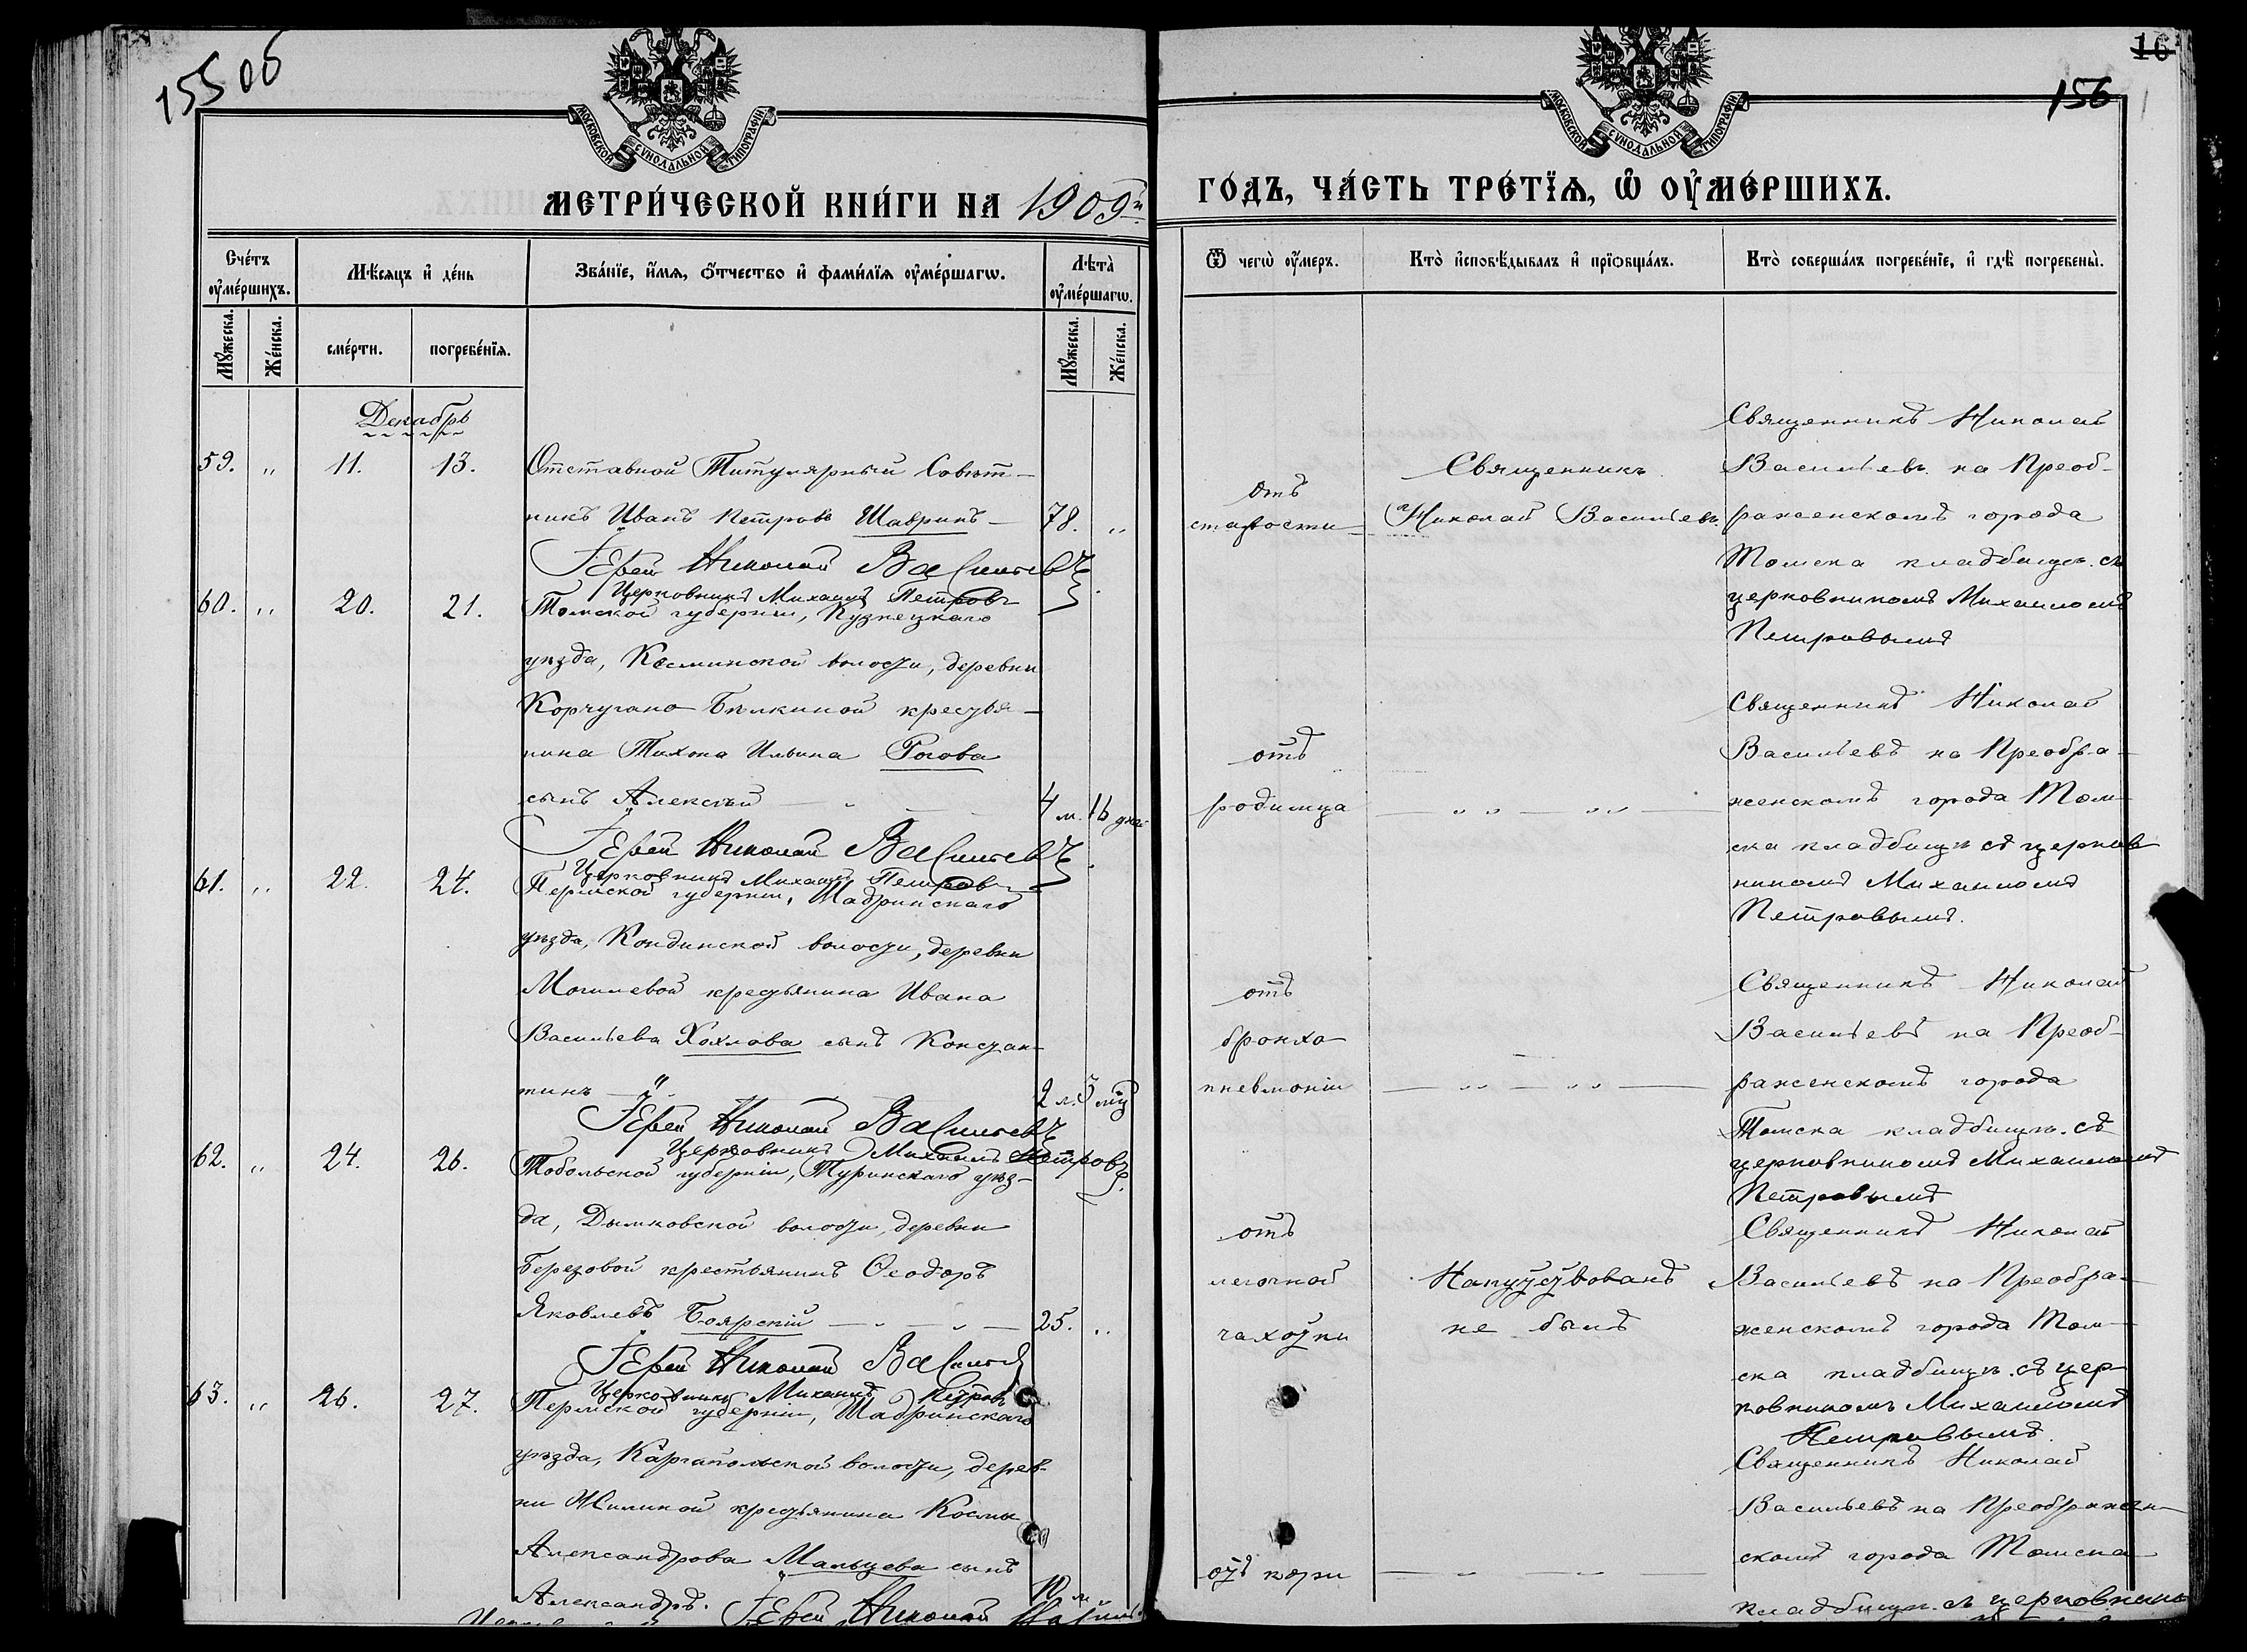 155 об
16
156
МОСКОВСКОЙ СѴНОДАЛЬНОЙ ТИПОГРАФІИ
МОСКОВСКОЙ СѴНОДАЛЬНОЙ ТИПОГРАФІИ
МЕТРИ́ЧЕСКОЙ КНИ́ГИ НА 1909й
ГО́ДЪ, ЧА́СТЬ ТРЕ́ТЇѦ, Ѡ҆ ОУ҆МЕ́РШИХЪ.
Сче́тъ оу҆ме́ршихъ.
Мѣ́сѧцъ и҆ де́нь
Зва́нїе, и҆́мѧ, ѻ҆́тчество и҆ фами́лїѧ оу҆ме́ршагѡ.
Лѣта̀ оу҆ме́ршагѡ.
Ѿ чегѡ̀ оу҆́меръ.
Кто̀ и҆сповѣ́дывалъ и҆ прїѻбща́лъ.
Кто̀ соверша́лъ погребе́нїе, и҆ гдѣ̀ погребены̀.
Мꙋ́жеска.
Же́нска.
сме́рти.
погребе́нїѧ.
Мꙋ́жеска.
Же́нска.
Декабрь
59. „ 11. 13.
Отставной Титулярный Совѣт-
никъ Иванъ Петровъ Шавринъ — 78. „
Іерей Николай Васильевъ
Церковникъ Михаилъ Петровъ
отъ
старости
Священникъ
Николай Васильевъ.
Священникъ Николай
Васильевъ на Преоб-
раженскомъ города
Томска кладбищѣ съ
церковникомъ Михаиломъ
Петровымъ
60. „ 20. 21.
Томской губерніи, Кузнецкаго
уѣзда, Касминской волости, деревни
Корчугано-Бѣлкиной крестья-
нина Тихона Ильина Рогова
сынъ Алексѣй — 4 м. 16 дней
Іерей Николай Васильевъ
Церковникъ Михаилъ Петровъ
отъ
родимца
— „ — „ —
Священникъ Николай
Васильевъ на Преобра-
женскомъ города Том-
ска кладбищѣ съ церков
никомъ Михаиломъ
Петровымъ.
61. „ 22. 24.
Пермской губерніи, Шадринскаго
уѣзда, Кондинской волости, деревни
Могилевой крестьянина Ивана
Васильева Хохлова сынъ Констан-
тинъ — 2 л. 3 мц
Іерей Николай Васильевъ
Церковникъ Михаилъ Петровъ
отъ
бронхо
пневмоніи
— „ — „ —
Священникъ Николай
Васильевъ на Преоб-
раженскомъ города
Томска кладбищѣ. съ
церковникомъ Михаиломъ
Петровымъ
62. „ 24. 26.
Тобольской губерніи, Туринскаго уѣз-
да, Дымковской волости, деревни
Березовой крестьянинъ Ѳеодоръ
Яковлевъ Боярскій — „ — „ — 25. „
Іерей Николай Васильевъ
Церковникъ Михаилъ Петровъ
отъ
легочной
чахотки
Напутствованъ
не былъ
Священникъ Николай
Васильевъ на Преобра-
женскомъ города Том-
ска кладбищѣ. съ цер-
ковникомъ Михаиломъ
Петровымъ.
63. „ 26. 27.
Пермской губерніи, Шадринскаго
уѣзда, Каргапольской волости, дерев-
ни Жилиной крестьянина Космы
Александрова Мальцева сынъ
Александръ. 10 м
Іерей Николай
отъ кори
— „ — „ —
Священникъ Николай
Васильевъ на Преображен-
скомъ города Томска
кладбищѣ. съ церковник